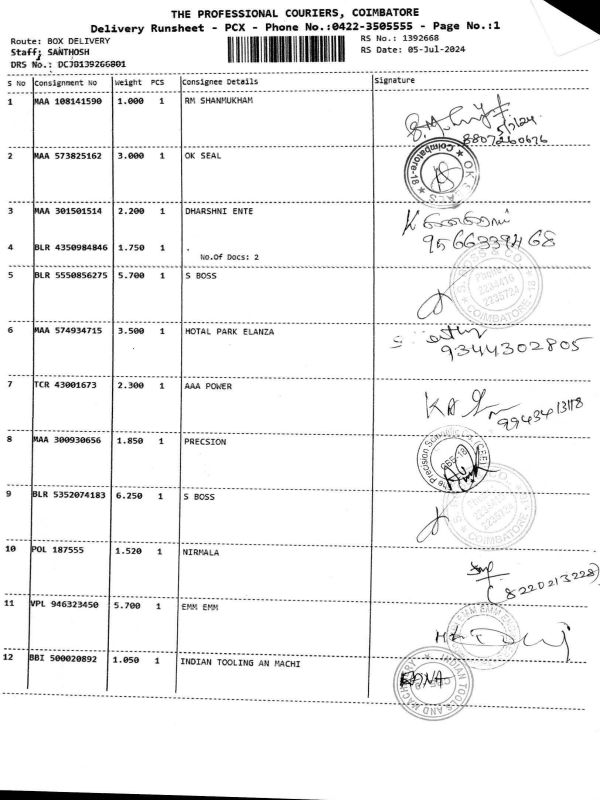 THE PROFESSIONAL COURIERS, COIMBATORE
Delivery Runsheet - PCX - Phone No.:0422-3505555 - Page No.:1
Route: BOX DELIVERY
RS No.: 1392668
Staff: SANTHOSH
RS Date: 05-Jul-2024
DRS No.: DCJB139266801
S No Consignment No Weight PCS Consignee Details Signature
1 MAA 108141590 1.000 1 RM SHANMUKHAM
5/7/24
8807260676
2 MAA 573825162 3.000 1 OK SEAL
OK SEALS Coimbatore-18
3 MAA 301501514 2.200 1 DHARSHNI ENTE
9566339468
4 BLR 4350984846 1.750 1 .
No.Of Docs: 2
5 BLR 5550856275 5.700 1 S BOSS
S BOSS & CO.
COIMBATORE - 18
6 MAA 574934715 3.500 1 HOTAL PARK ELANZA
9344302805
7 TCR 43001673 2.300 1 AAA POWER
9943413118
8 MAA 300930656 1.850 1 PRECSION
The Precision Scientific Co (CBE)
CBE-18
9 BLR 5352074183 6.250 1 S BOSS
COIMBATORE
10 POL 187555 1.520 1 NIRMALA
(8220213228)
11 VPL 946323450 5.700 1 EMM EMM
EMM EMM
12 BBI 500020892 1.050 1 INDIAN TOOLING AN MACHI
INDIAN TOOLS AND MACHINERY